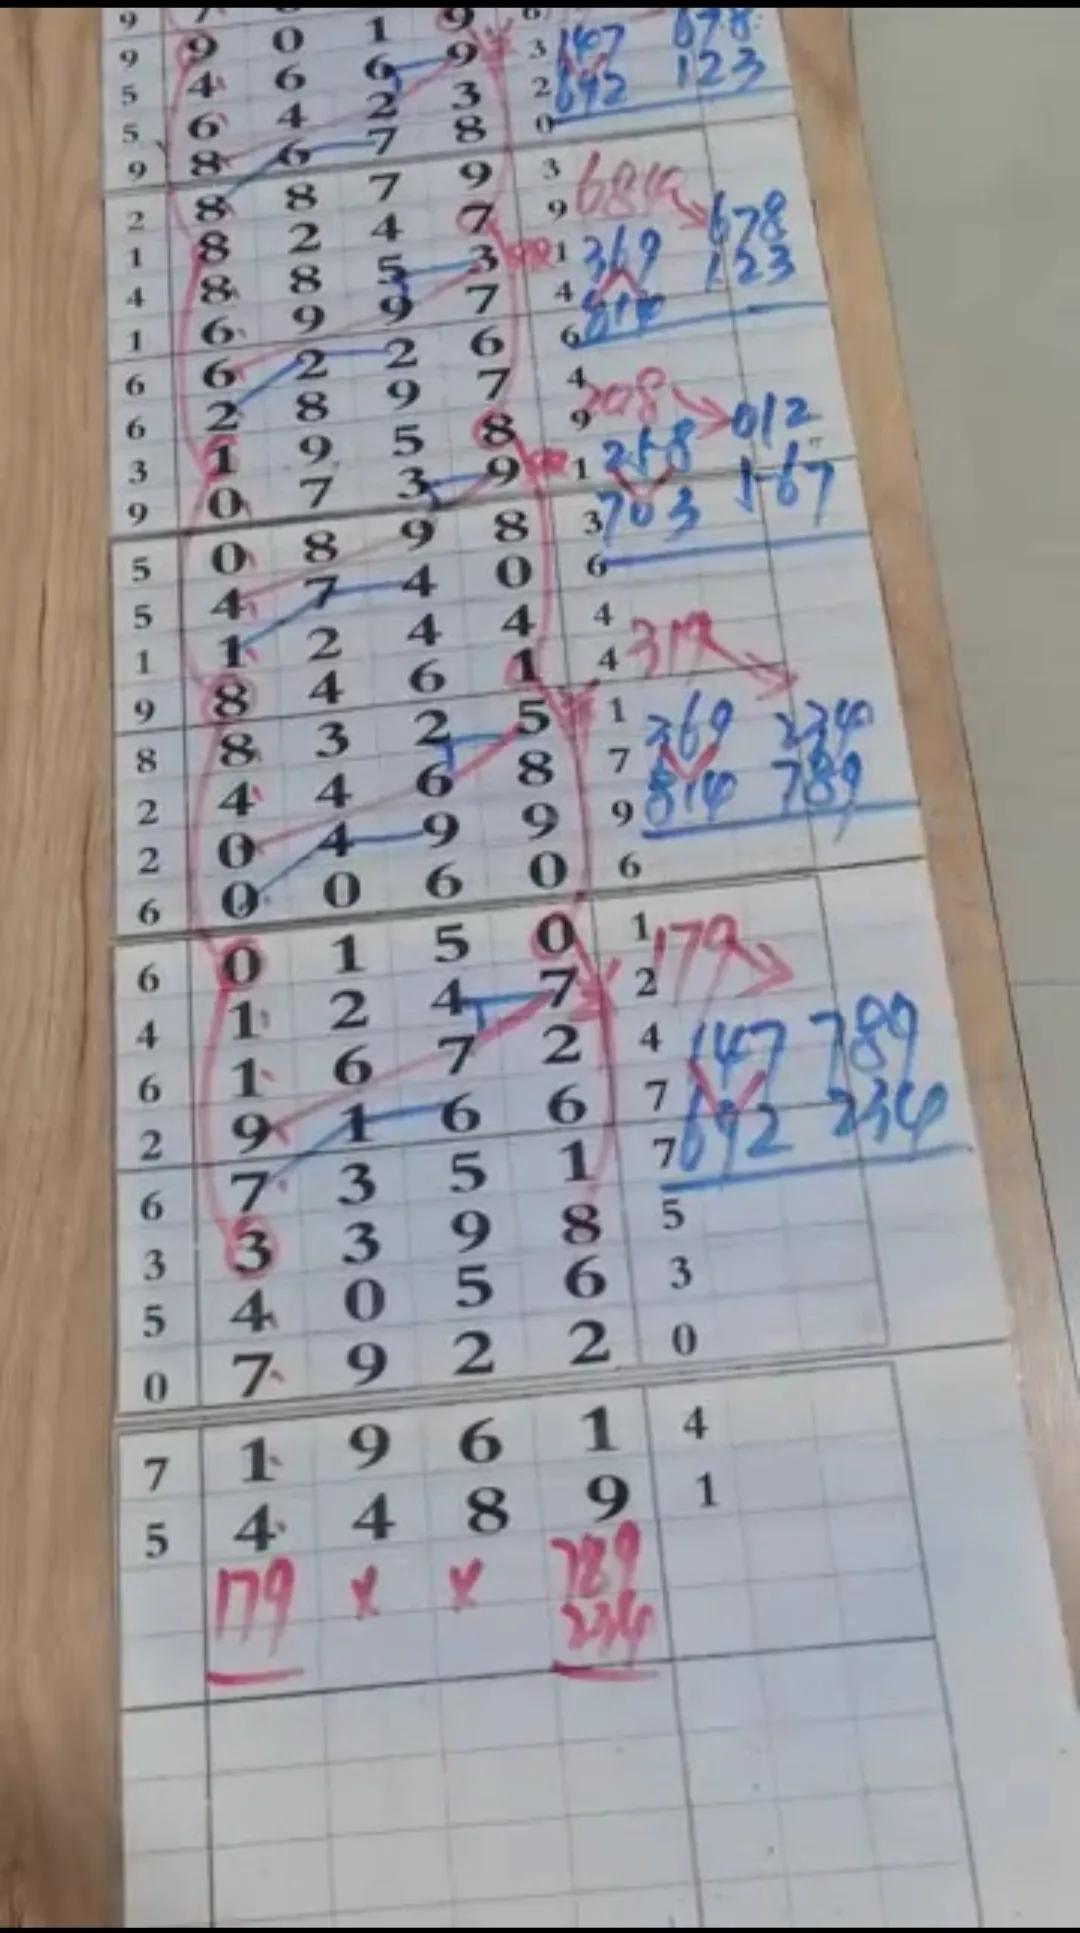 9 0 1 9 3 147 678
5 4 6 6 9 2 692 123
5 6 4 2 3 0
9 8 6 7 8
2 8 8 7 9 3
1 8 2 4 7 9 678
4 8 8 5 3 1 369 123
1 6 9 9 7 4 814
6 6 2 2 6 6
6 2 8 9 7 4 308 012
3 1 9 5 8 9 258 567
9 0 7 3 9 1 703
5 0 8 9 8 3
5 4 7 4 0 6
1 1 2 4 4 4
9 8 4 6 1 4
8 8 3 2 5 1 369 234
2 4 4 6 8 7 814 789
2 0 4 9 9 9
6 0 0 6 0 6
6 0 1 5 0 1 179
4 1 2 4 7 2
6 1 6 7 2 4 147 789
2 9 1 6 6 7 692 234
6 7 3 5 1 7
3 3 3 9 8 5
5 4 0 5 6 3
0 7 9 2 2 0
7 1 9 6 1 4
5 4 4 8 9 1
179 x x 789
234